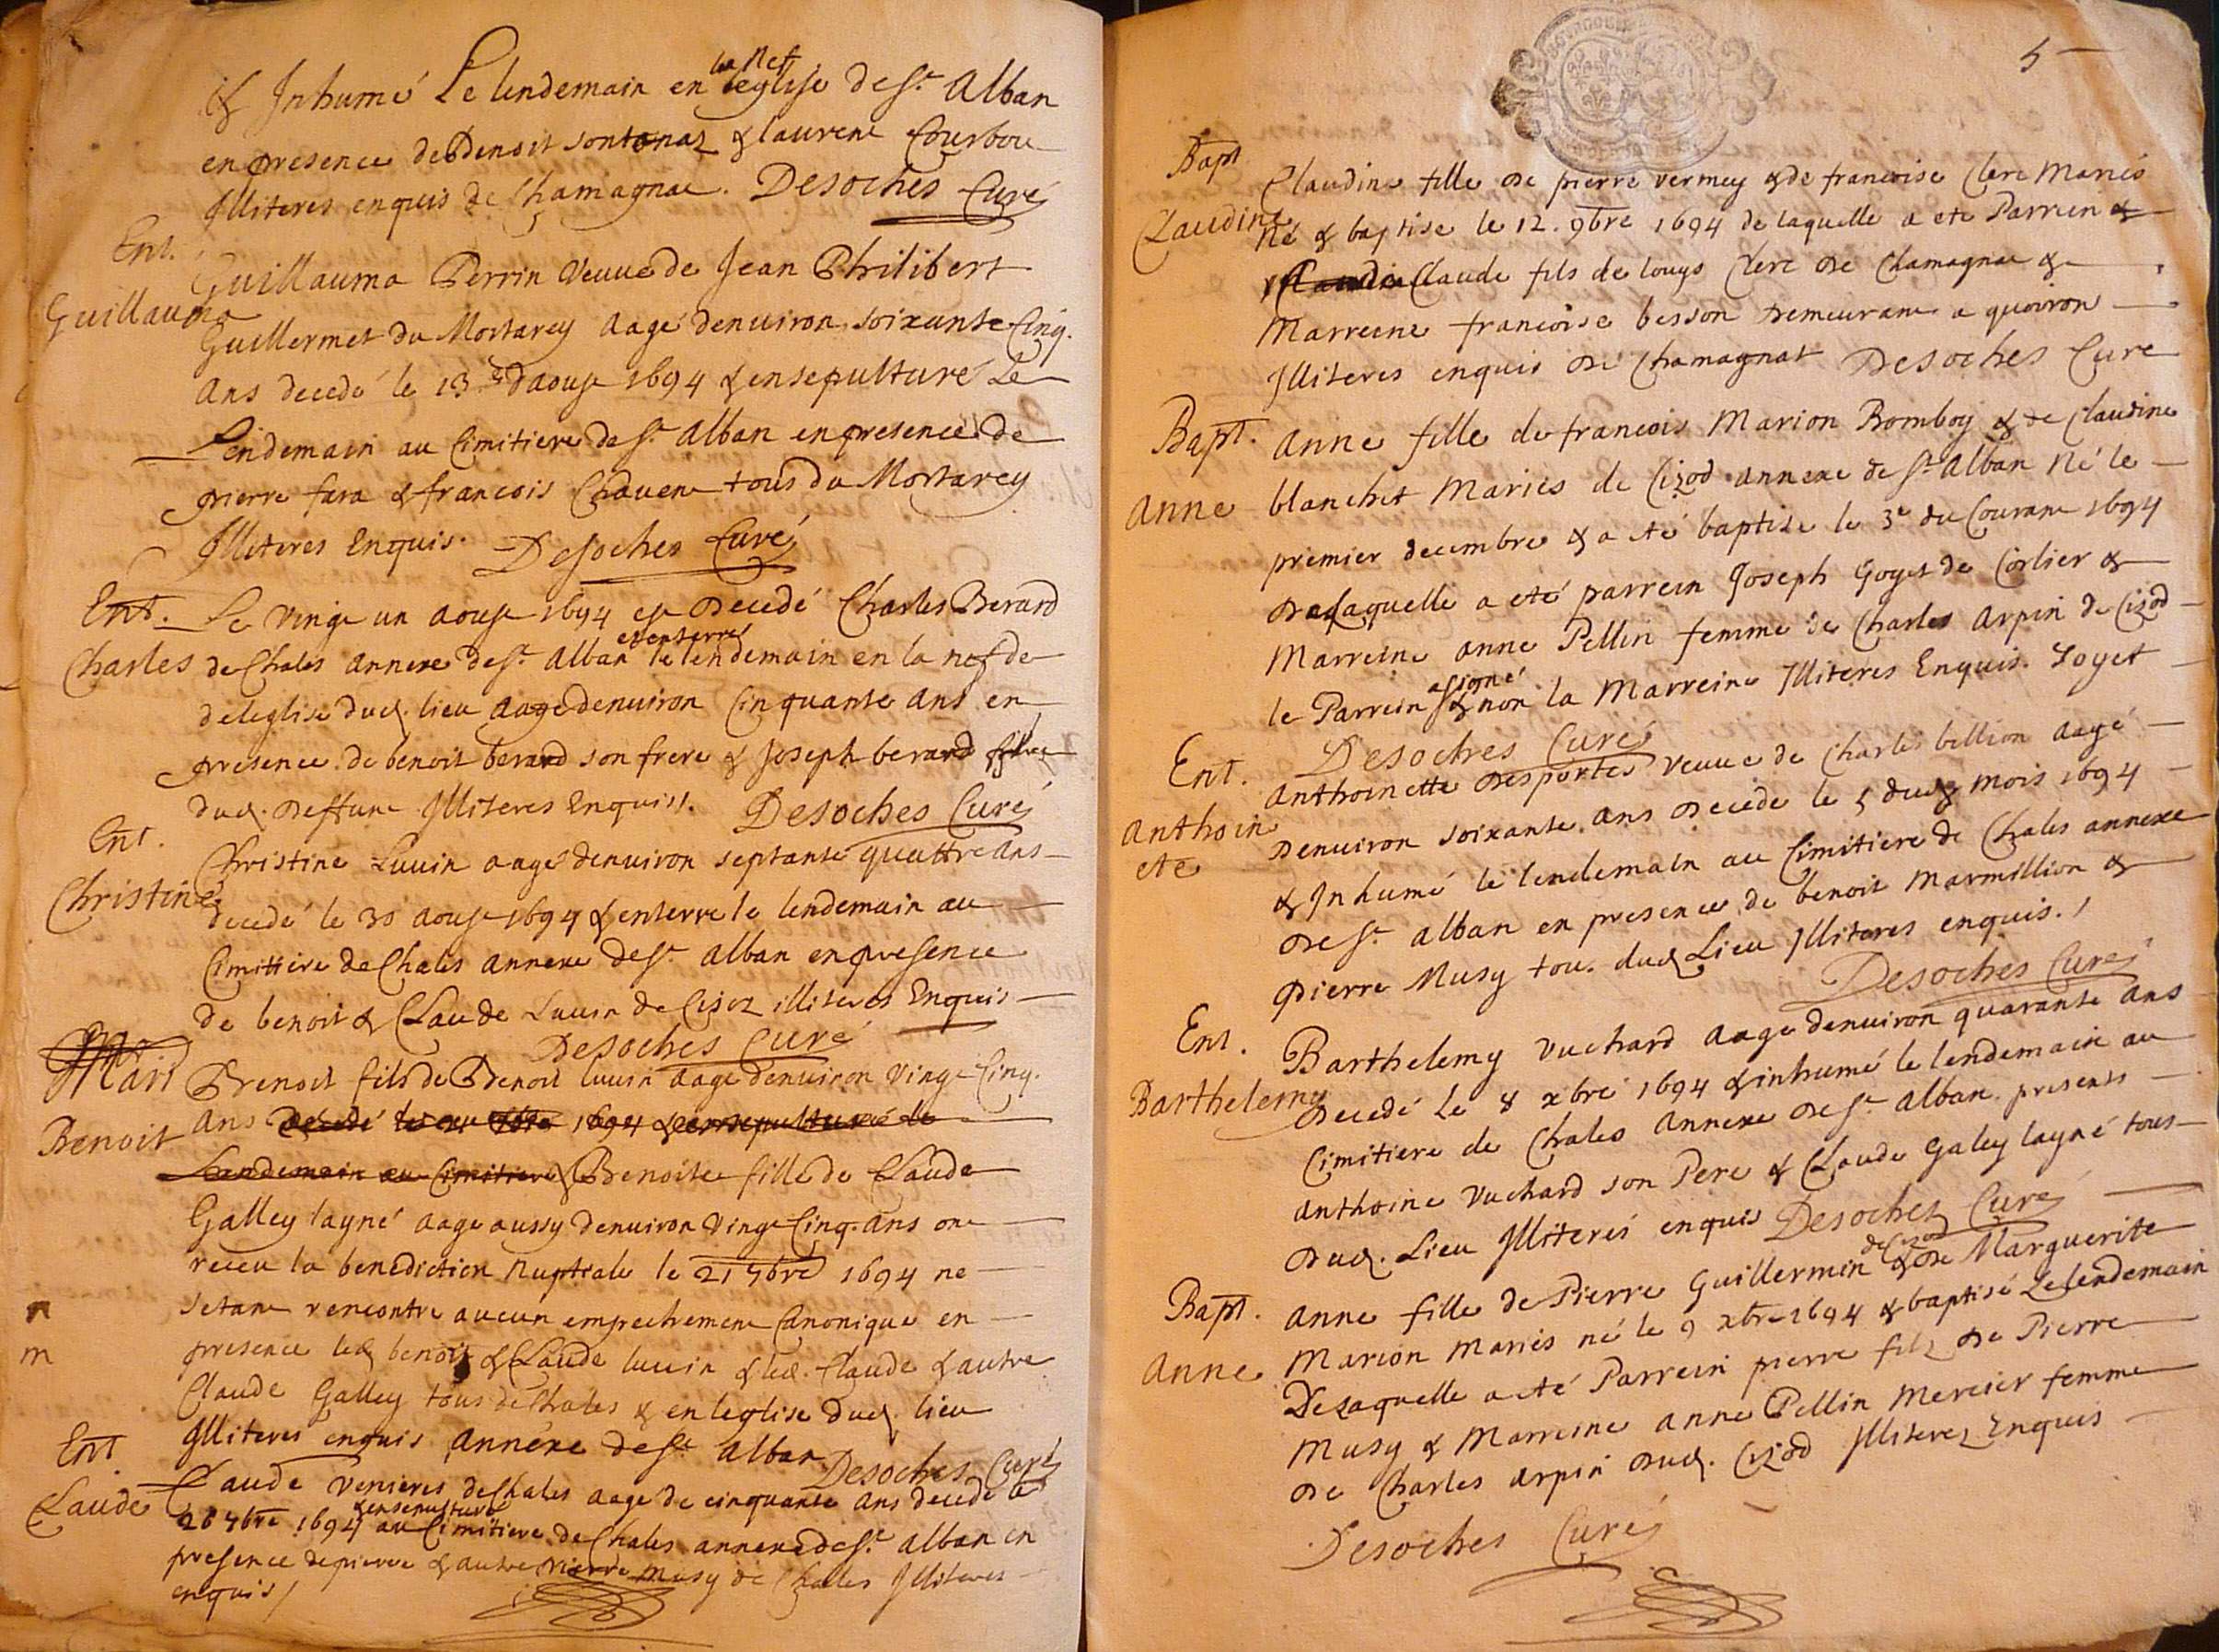 & Inhumé Le lendemain en la Nef leglise de St. Alban
en presence de Benoit sontonaz & laurent Courbou
Illiteres enquis de Chamagnac. Desoches Curé
Ent.
Guillauma
Guillauma Perrin veuve de Jean Philibert
Guillermet du Mortarey aagé denuiron soixante Cinq.
Ans decedé le 13e daoust 1694 & ensepulturé Le
Lendemain au Cimitiere de St. Alban en presence de
pierre fara & francois Chavent tous du Mortarey
Illiteres Enquis. Desoches Curé
Ent.
Charles
Le vingt un aoust 1694 est Decedé Charles Berard
de Chales annexe de St. Alban et enterré le lendemain en la nef de
deleglise dud. lieu aage denuiron Cinquante Ans en
presence de benoit berard son frere & Joseph berard
dud. Deffunt Illiteres Enquis. Desoches Curé
Ent.
Christine
Christine Luuin aagé denuiron septante quattre ans
decedé le 30 aoust 1694 & enterré le lendemain au
Cimittiere de Chales annexe de St. alban en presence
de benoit & Claude Luuin de Cisoz illiteres Enquis
Desoches Curé
Mari
Benoit
Benoit fils de Benoit luuin aage denuiron vingt Cinq.
ans decedé le 1694 & ensepulturé le
Lendemain au Cimitiere & Benoite fille de Claude
Galley layné aage aussy denuiron vingt Cinq. ans ont
receu la benediction Nuptiale le 21 7bre 1694 ne
setant rencontre aucun empechement Canonique en
presence led. benoit & Claude luuin & led. Claude & autre
Claude Galley tous de Chales & en leglise dud. lieu
Illiteres enquis annexe de St. alban Desoches Curé
n
m
Ent.
Claude
Claude Venieres de Chales aage de cinquante ans decedé le
26 7bre 1694 & ensepulturé au Cimitiere de Chales annexe de St. alban en
presence de pierre & autre pierre Musy de Chales Illiteres
enquis /
5
Bapt
Claudine
Claudine fille de pierre vermey & de francoise Clerc Mariés
Né & baptise le 12. 9bre 1694 de laquelle a ete Parrein &
Claude fils de louys Clerc de Chamagnat &
Marreine francoise besson Demeurant a quoiron
Illiteres enquis de Chamagnat Desoches Cure
Bapt.
Anne
Anne fille de francois Marion Bomboy & de Claudine
blanchet Mariés de Cizod annexe de St. Alban Né le
premier decembre & a eté baptise le 3e du Courant 1694
Delaquelle a eté parrein Joseph Goyet de Corlier &
Marreine anne Pellin femme de Charles Arpin de Cizod
le Parrein a signé & non la Marreine Illiteres Enquis. Joyet
Desoches Curé
Ent.
Anthoin
ete
Anthoinette Desportes veuve de Charles billion aagé
Denuiron soixante ans Decede le 5 dud. mois 1694
& Inhumé le lendemain au Cimitiere de Chales annexe
de St. alban en presence de benoit Marmillion &
Pierre Musy tou. dud. Lieu Illiteres enquis. /
Desoches Curé
Ent.
Barthelemy
Barthelemy Vuchard Aage denuiron quarante ans
Decedé Le 8 xbre 1694 & inhumé le lendemain au
Cimitiere de Chales Annexe de St. alban. presents
anthoine Vuchard son Pere & Claude Galey layné tous
dud. Lieu Illiterés enquis Desoches Curé
Bapt.
Anne
Anne fille de Pierre Guillermin de Cizod & de Marguerite
Marion Mariés né le 9 xbre 1694 & baptisé Le lendemain
Delaquelle a eté Parrein pierre filz de Pierre
Musy & Marreine anne Pellin Mercier femme
de Charles arpin dud. Cizod Illiterez Enquis
Desoches Curé